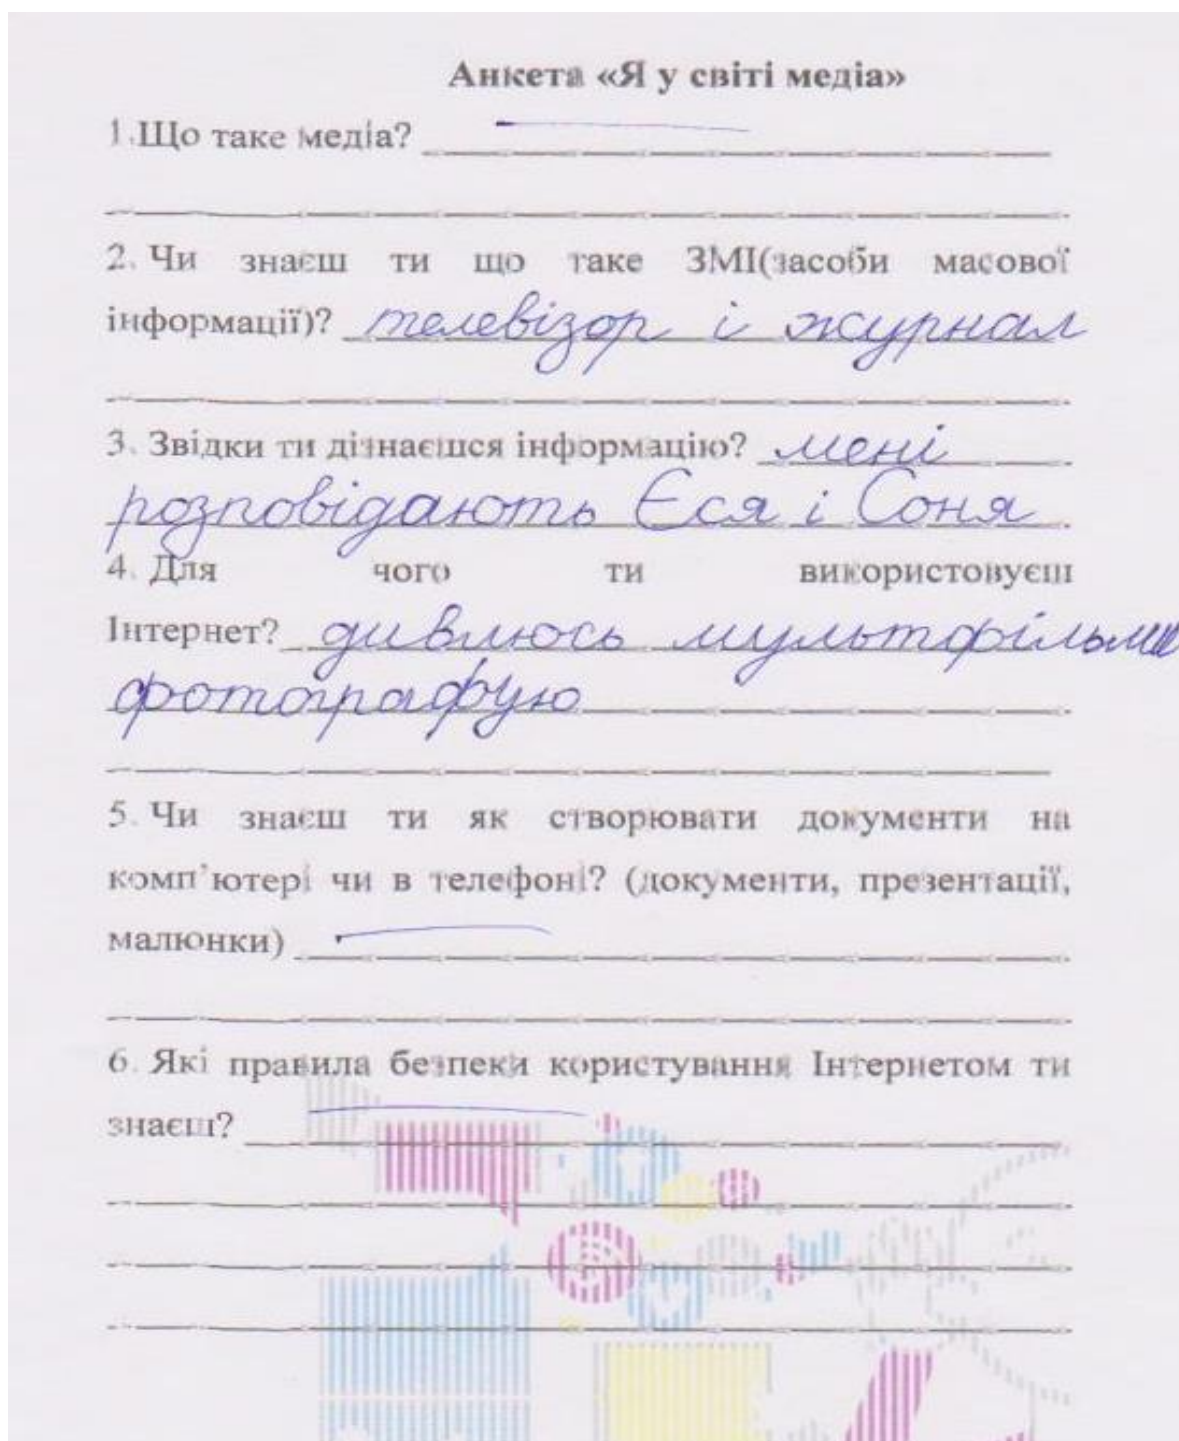 Анкета «Я у світі медіа»
1.Що таке медіа? —
2. Чи знаєш ти що таке ЗМІ(засоби масової
інформації)? телевізор і журнал
3. Звідки ти дізнаєшся інформацію? мені
розповідають Єся і Соня
4. Для чого ти використовуєш
Інтернет? дивлюсь мультофільми
фотографую
5. Чи знаєш ти як створювати документи на
комп'ютері чи в телефоні? (документи, презентації,
малюнки) —
6. Які правила безпеки користування Інтернетом ти
знаєш? —